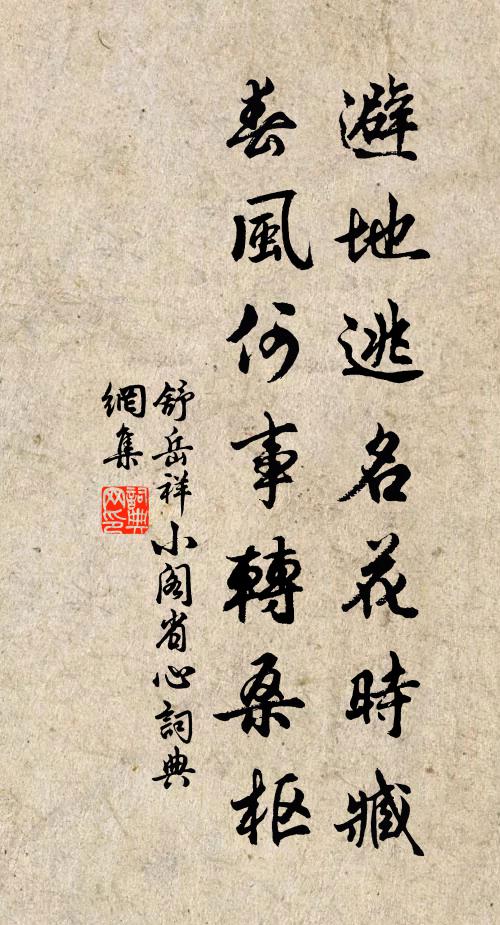 避地逃名花時臧
春風何事轉桑枢
舒岳祥小閣省心詞典
網集
詞典
网印